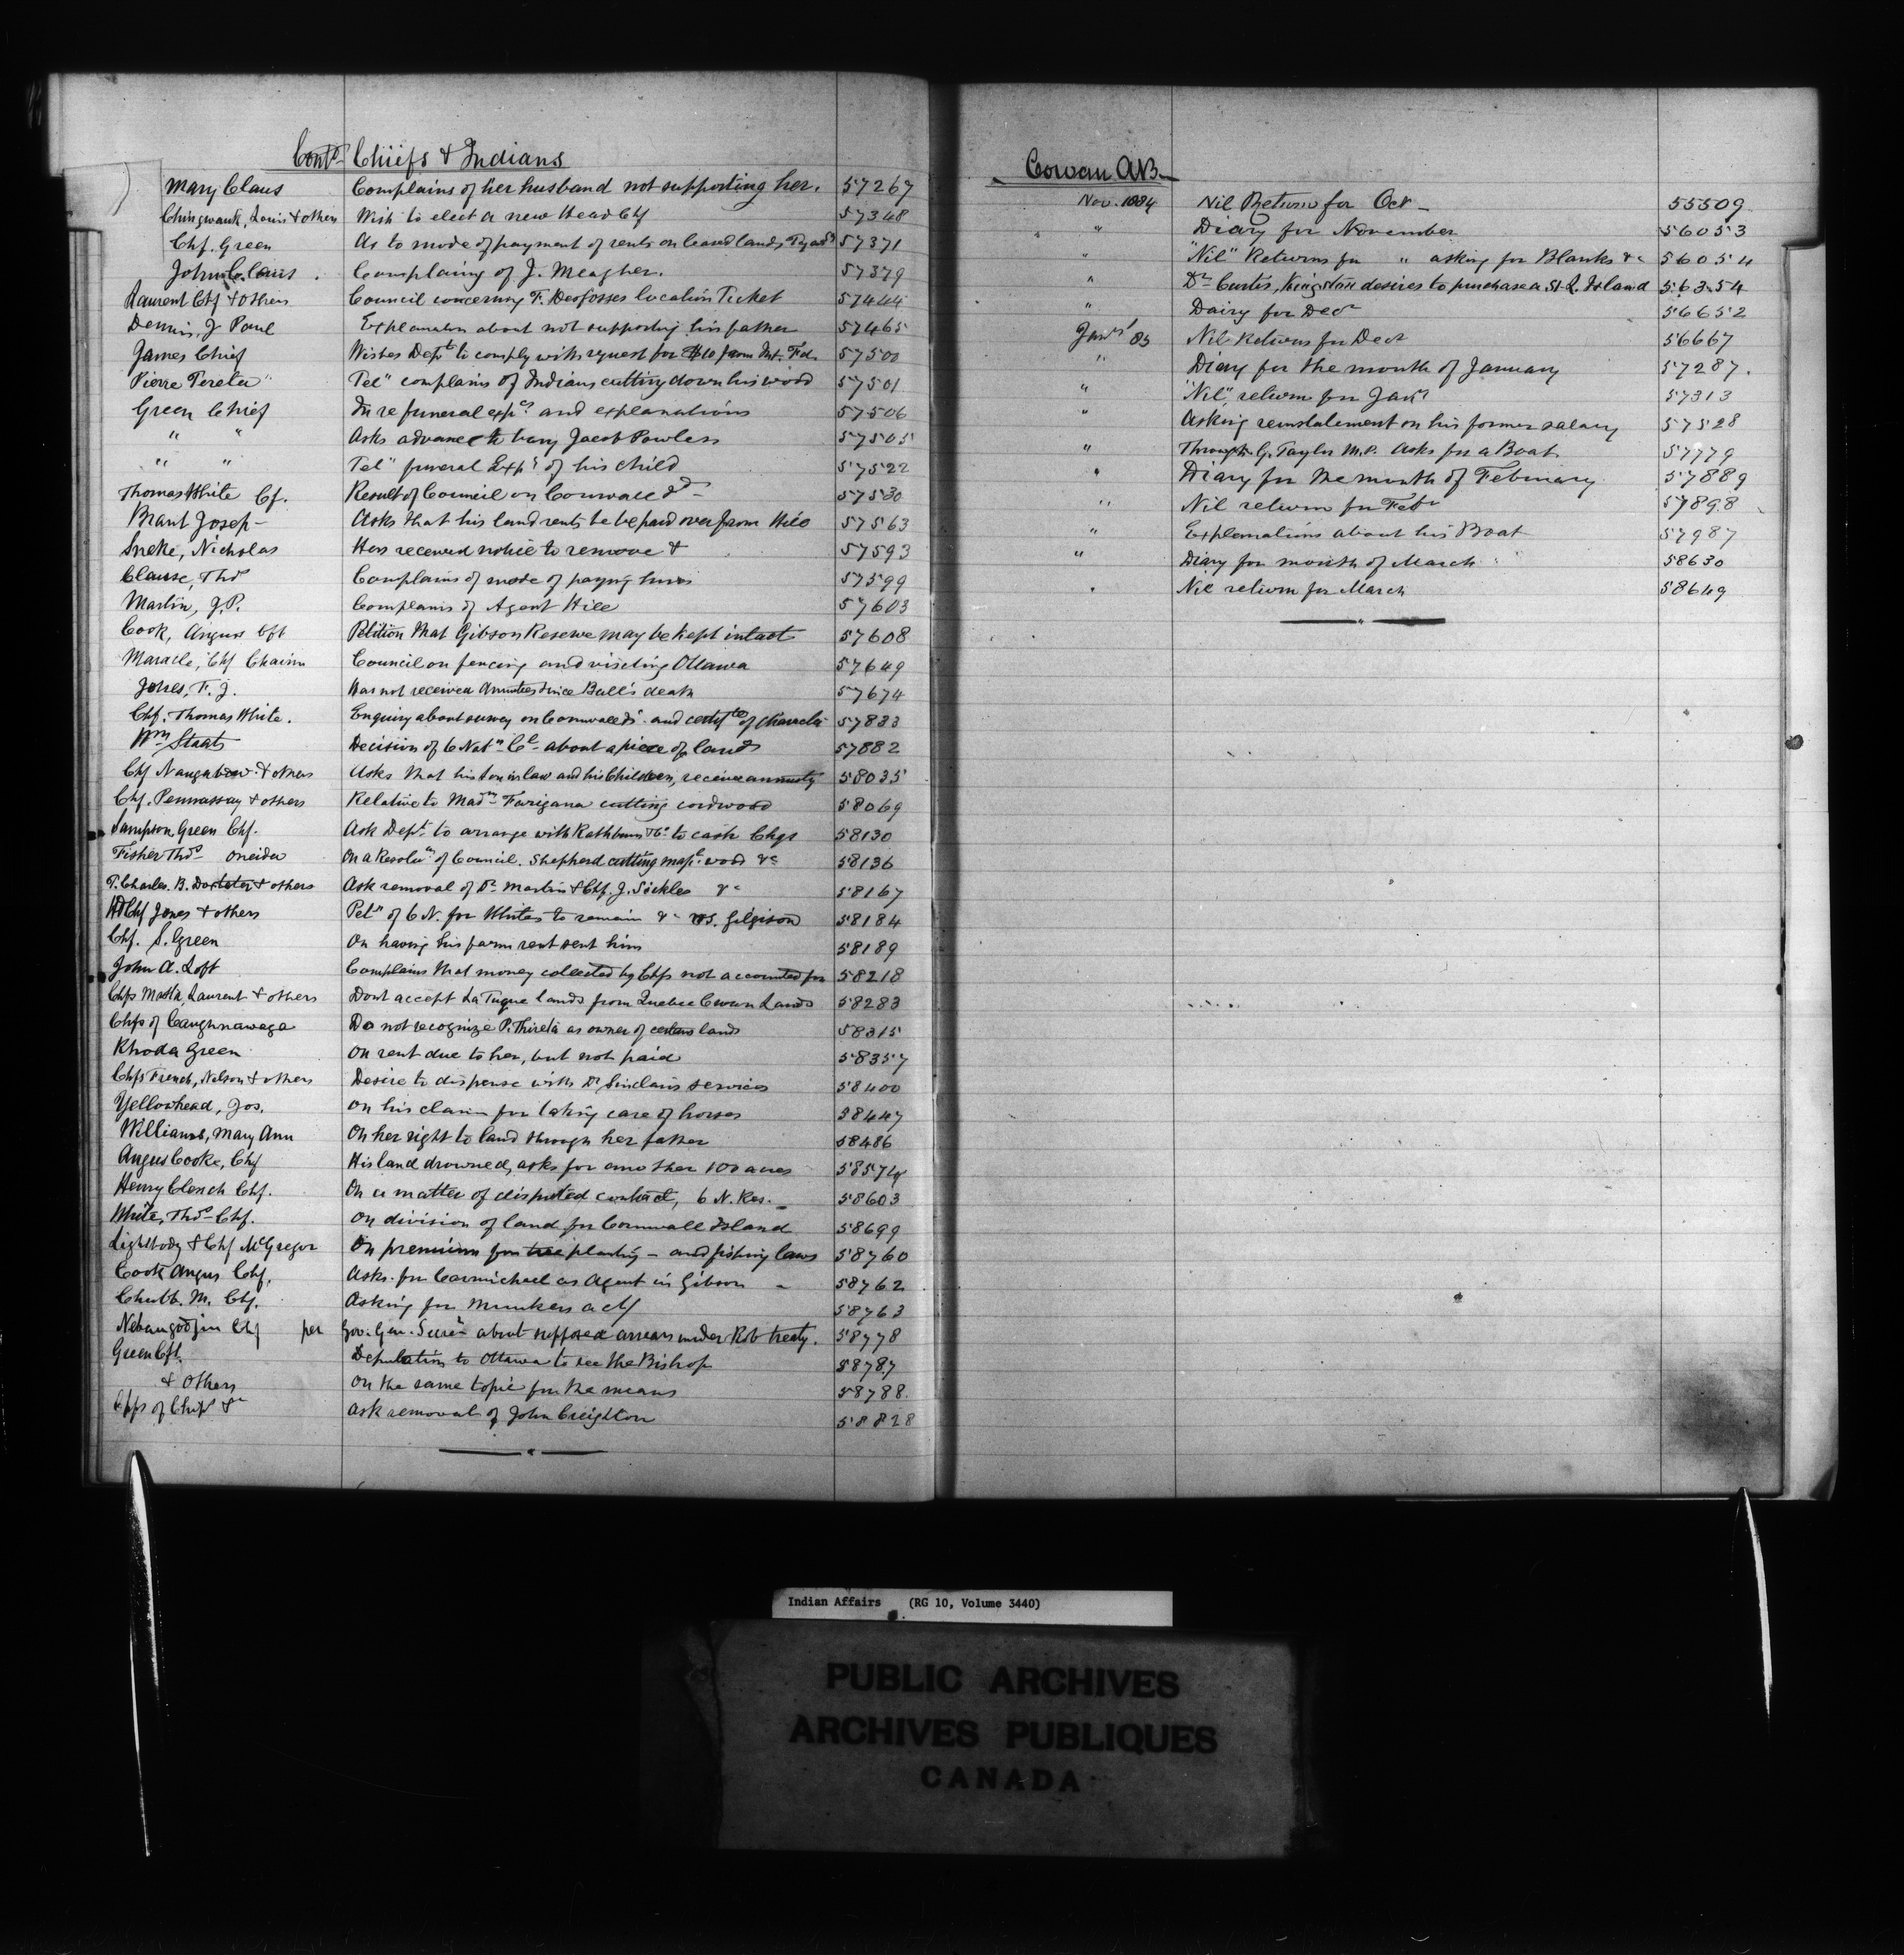 Contd Chiefs & Indians
Mary Claus Complains of her husband not supporting her. 57267
Chingwauk, Louis & others Wish to elect a new Head Chf 57348
Chf. Green As to mode of payment of rents on leased lands 57371
John Claus Complaing of J. Meagher. 57379
Laurent Chf & others Council concerning F. Desfosses location Ticket 57444
Dennis, J Paul Explanation about not supporting his father 57465
James Chief Wishes Dept to comply with request for $10 from Int. Fd. 57500
Pierre Tereta Teln complains of Indians cutting down his wood 57501
Green Chief In re funeral exps and explanations 57506
" " Asks advance to bury Jacob Powless 57505
" " Teln funeral Exps of his child 57522
Thomas White Cf. Result of Council on Cornwall Id 57530
Brant Josep- Asks that his land rents be be paid over from Hill 57563
Sneke, Nicholas Has received notice to remove & 57593
Clause, Thos Complains of mode of payng 57599
Martin, J.P. Complains of Agent Hill 57603
Cook, Angus Cft Petition that Gibson Reserve may be kept intact 57608
Maracle, Chf Chairm Council on fencing and visiting Ottawa 57649
Jones, F. J. Has not received Annuties since Ball's death 57674
Chf. Thomas White. Enquiry about survey on Cornwall Is. and certifte of character 57833
Wm Staats Decision of 6 Natn Cl about a piece of land 57882
Chf Naugabow & others Asks that his son in law and his Children, receive annuity 58035
Chf. Pennassay & others Relative to Madm Farigana cutting cordwood 58069
Sampson Green Chf. Ask Dept. to arrange with Rathbun & Co to cash Chqs 58130
Fisher Thos Oneida On a Resolun of Council. Shepherd cutting mapl. wood &c 58136
T. Charles. B. Doxtater & others Ask removal of Dr Martin & Chf. J. Sickles &c 58167
Hd Chf Jones & others Petn of 6 N. for Whites to remain &c 58184
Chf. S. Green On having his farm rent sent him 58189
John A. Loft Complains that money collected by Chfs not accounted for 58218
Chfs Masta, Laurent & others Dont accept La Tuque lands from Quebec Crown Lands 58283
Chfs of Caughnawaga Do not recognize P. Thireta as owner of certain lands 58315
Rhoda Green On rent due to her, but not paid 58357
Chfs French, Nelson & others Desire to dispense with Dr Sinclairs services 58400
Yellowhead, Jos. On his claim for taking care of horses 58447
Williams, Mary Ann On her right to land through her father 58486
Angus Cooke, Chf His land drowned, asks for another 100 acres 58574
Henry Clench Chf. On a matter of disputed contract, 6 N. Res. 58603
White, Thos Chf. On division of land for Cornwall Island 58699
Lightbody & Chf McGregor On premium for tree planting - and fishing laws 58760
Cook Angus Chf. Asks for Carmichael as Agent in Gibson - 58762
Chubb. M. Chf. Asking for 58763
Nebaugodjin Chf per Gov. Gen. Secrey about supposed arrears under Rob treaty. 58778
Green Cft. Deputation to Ottawa to see the Bishop 58787
& Others On the same topic for the means 58788.
of Chips &c Ask removal of John Creighton 58828
Cowan A B
Nov. 1884 Nil Return for Oct 55509
" Diary for November 56053
" "Nil" Returns for " asking for Blanks &c 56054
" Dr Curtis, Kingston desires to purchase a St. L. Island 56354
" Dairy for Decr 56652
Jany 85 Nil Returns for Decr 56667
" Diary for the month of January 57287.
" "Nil" return for Jany 57313
" Asking reinstatement on his former salary 57528
" Through G. Taylor M.P. Asks for a Boat 57779
" Diary for the month of February 57889
" Nil return for Feby 57898
" Explanations about his Boat 57987
" Diary for month of March 58630
" Nil return for March 58649
Indian Affairs (RG 10, Volume 3440)
PUBLIC ARCHIVES
ARCHIVES PUBLIQUES
CANADA